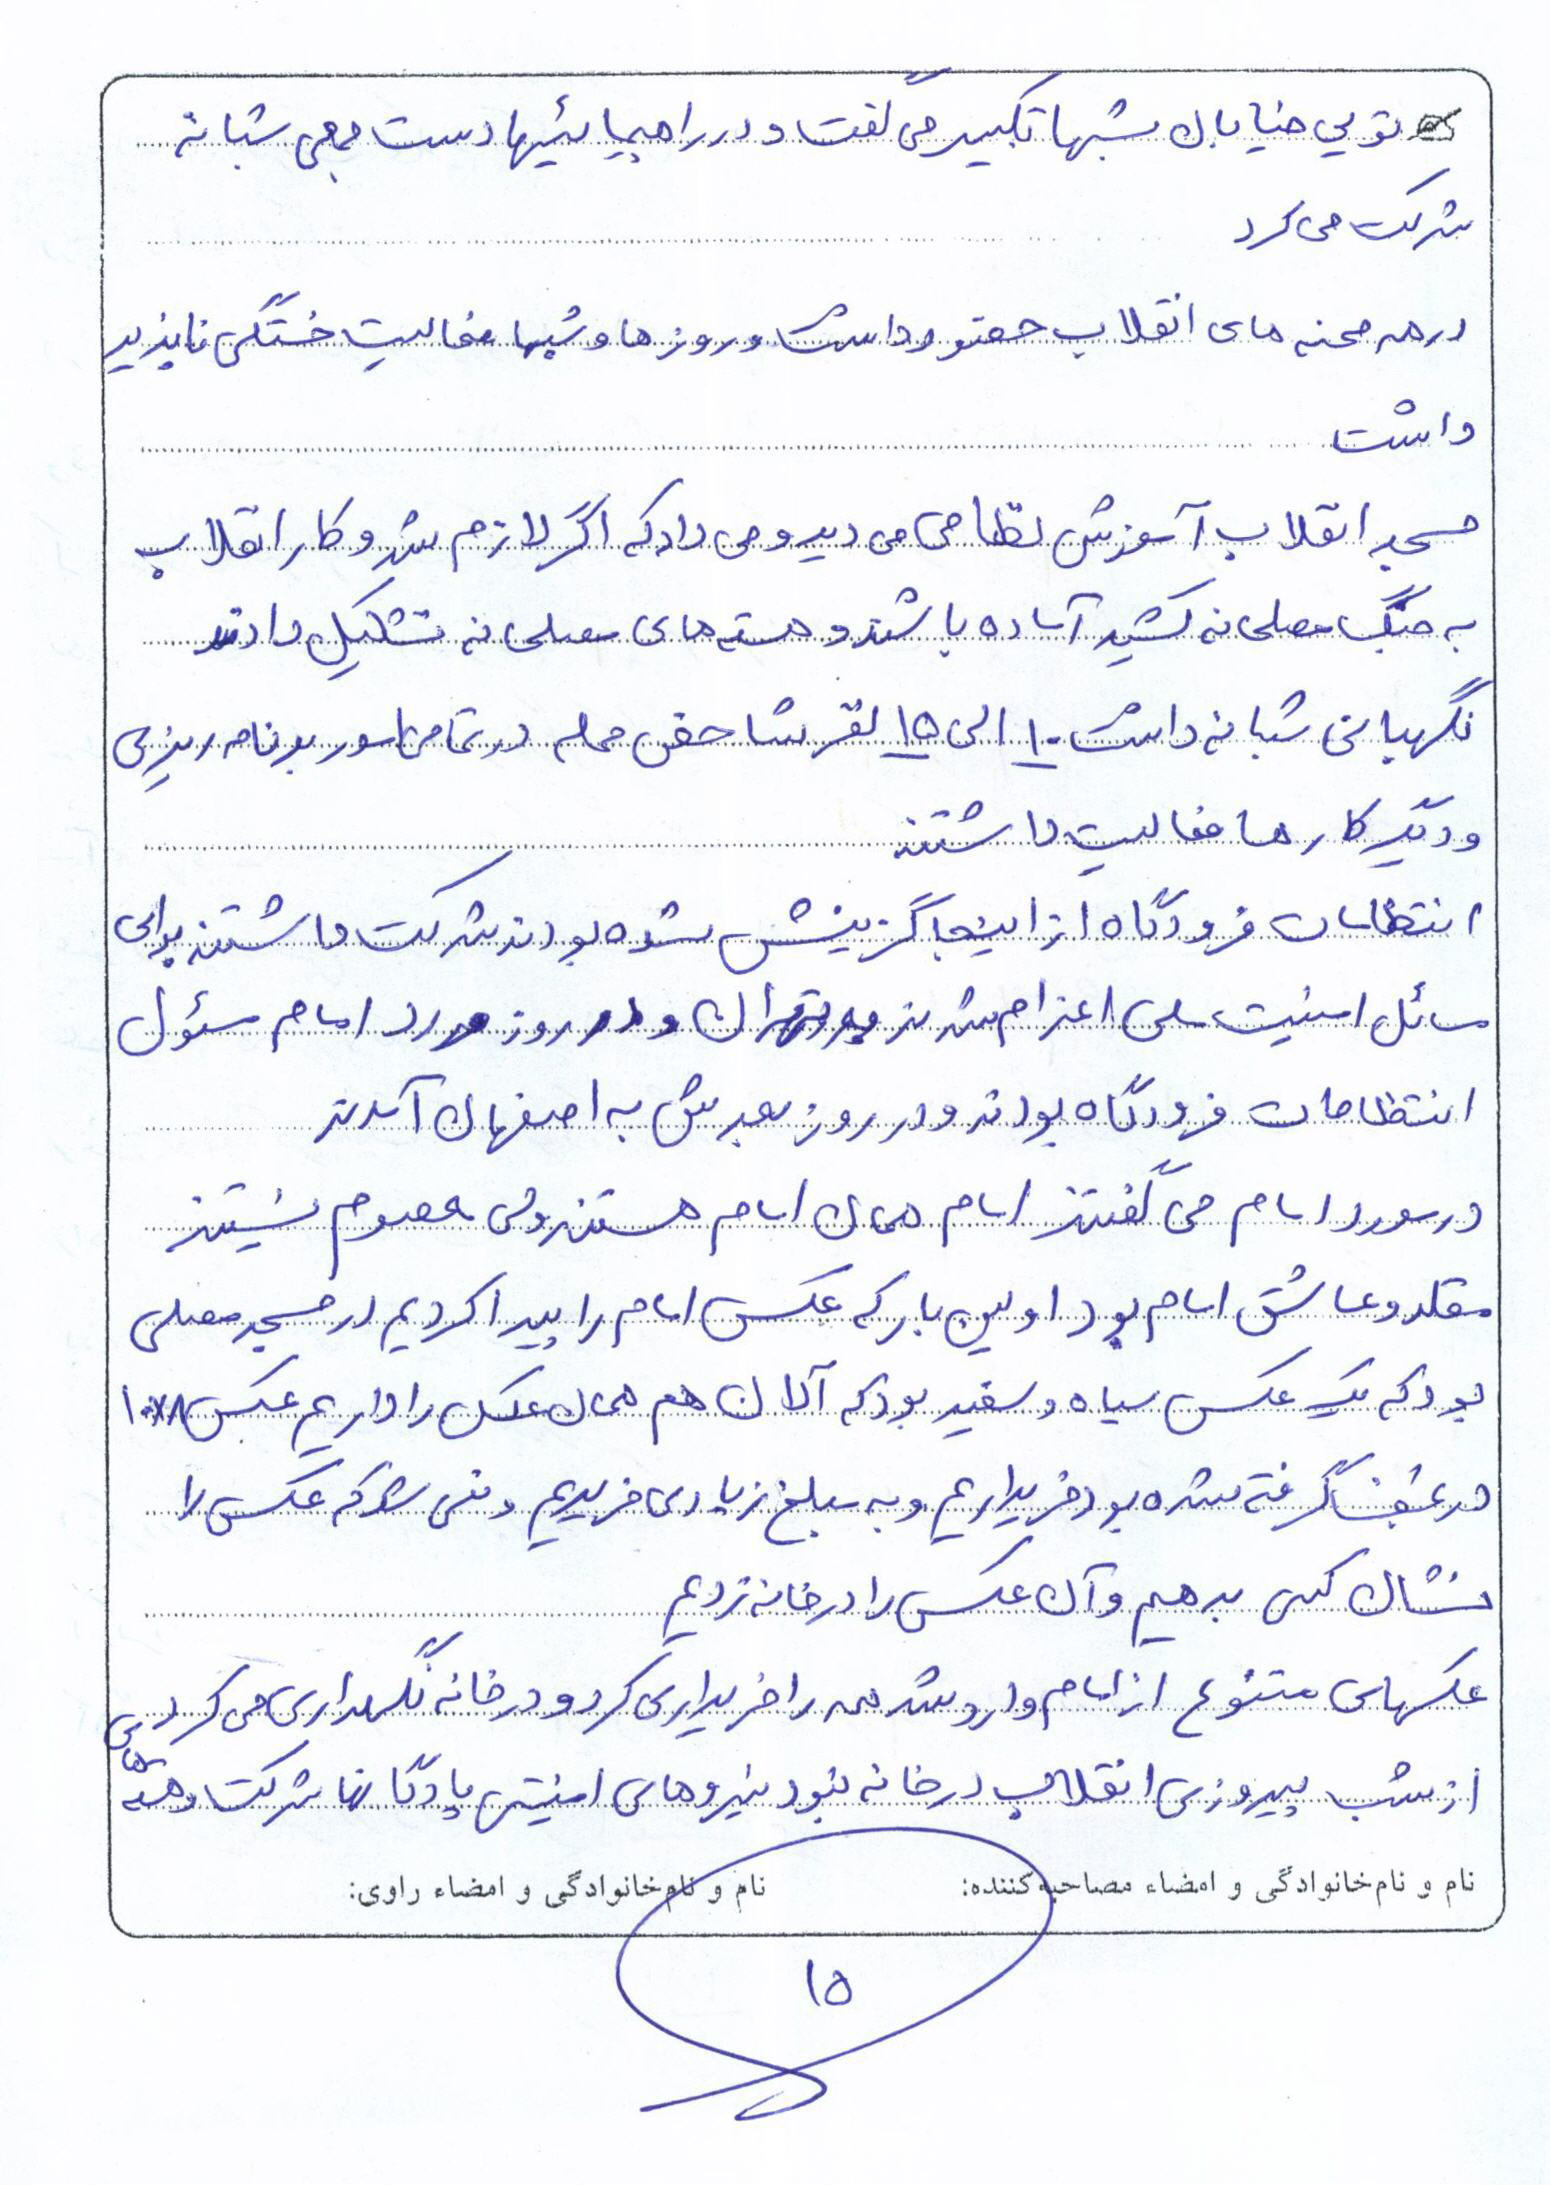 تویی خیابان شبها تکبیر می گفت و در راهپیمائیها دست جمعی شبانه
شرکت می کرد
در همه صحنه های انقلاب حضور داشت و روزها و شبها فعالیت خستگی ناپذیر
داشت
مسجد انقلاب آموزش نظامی می دید و می داد که اگر لازم شد و کار انقلاب
به جنگ مصلی نه کشید آماده باشند و هسته های مصلی نه تشکیل دادند
نگهبانی شبانه داشت ۱۰ الی ۱۵ نفر شاخص محله در تمامی امور برنامه ریزی
و دیگر کارها فعالیت داشتند
انتظامات فرودگاه از اینجا گزینش شده بودند شرکت داشتند برای
مسائل امنیت ملی اعزام شدند به تهران و در روز ورود امام مسئول
انتظامات فرودگاه بودند و در روز بعدش به اصفهان آمدند
در مورد امام می گفتند امام همان امام هستند ولی معصوم نیستند
مقلد و عاشق امام بود اولین بار که عکس امام را پیدا کردیم در مسجد مصلی
بود که یک عکس سیاه و سفید بود که آلان هم همان عکس را داریم عکس
در نجف گرفته شده بود خریداریم و به مبلغ زیادی خریدیم و نمی شد که عکس را
نشان کسی بدهیم و آن عکس را در خانه زدیم
عکسهای متنوع از امام وارد شد همه را خریداری کرد و در خانه نگهداری می کردیم
از شب پیروزی انقلاب در خانه نبود نیروهای امنیتی پادگانها شرکت و هسته های
نام و نام‌خانوادگی و امضاء مصاحبه‌کننده: نام و نام‌خانوادگی و امضاء راوی:
۱۵